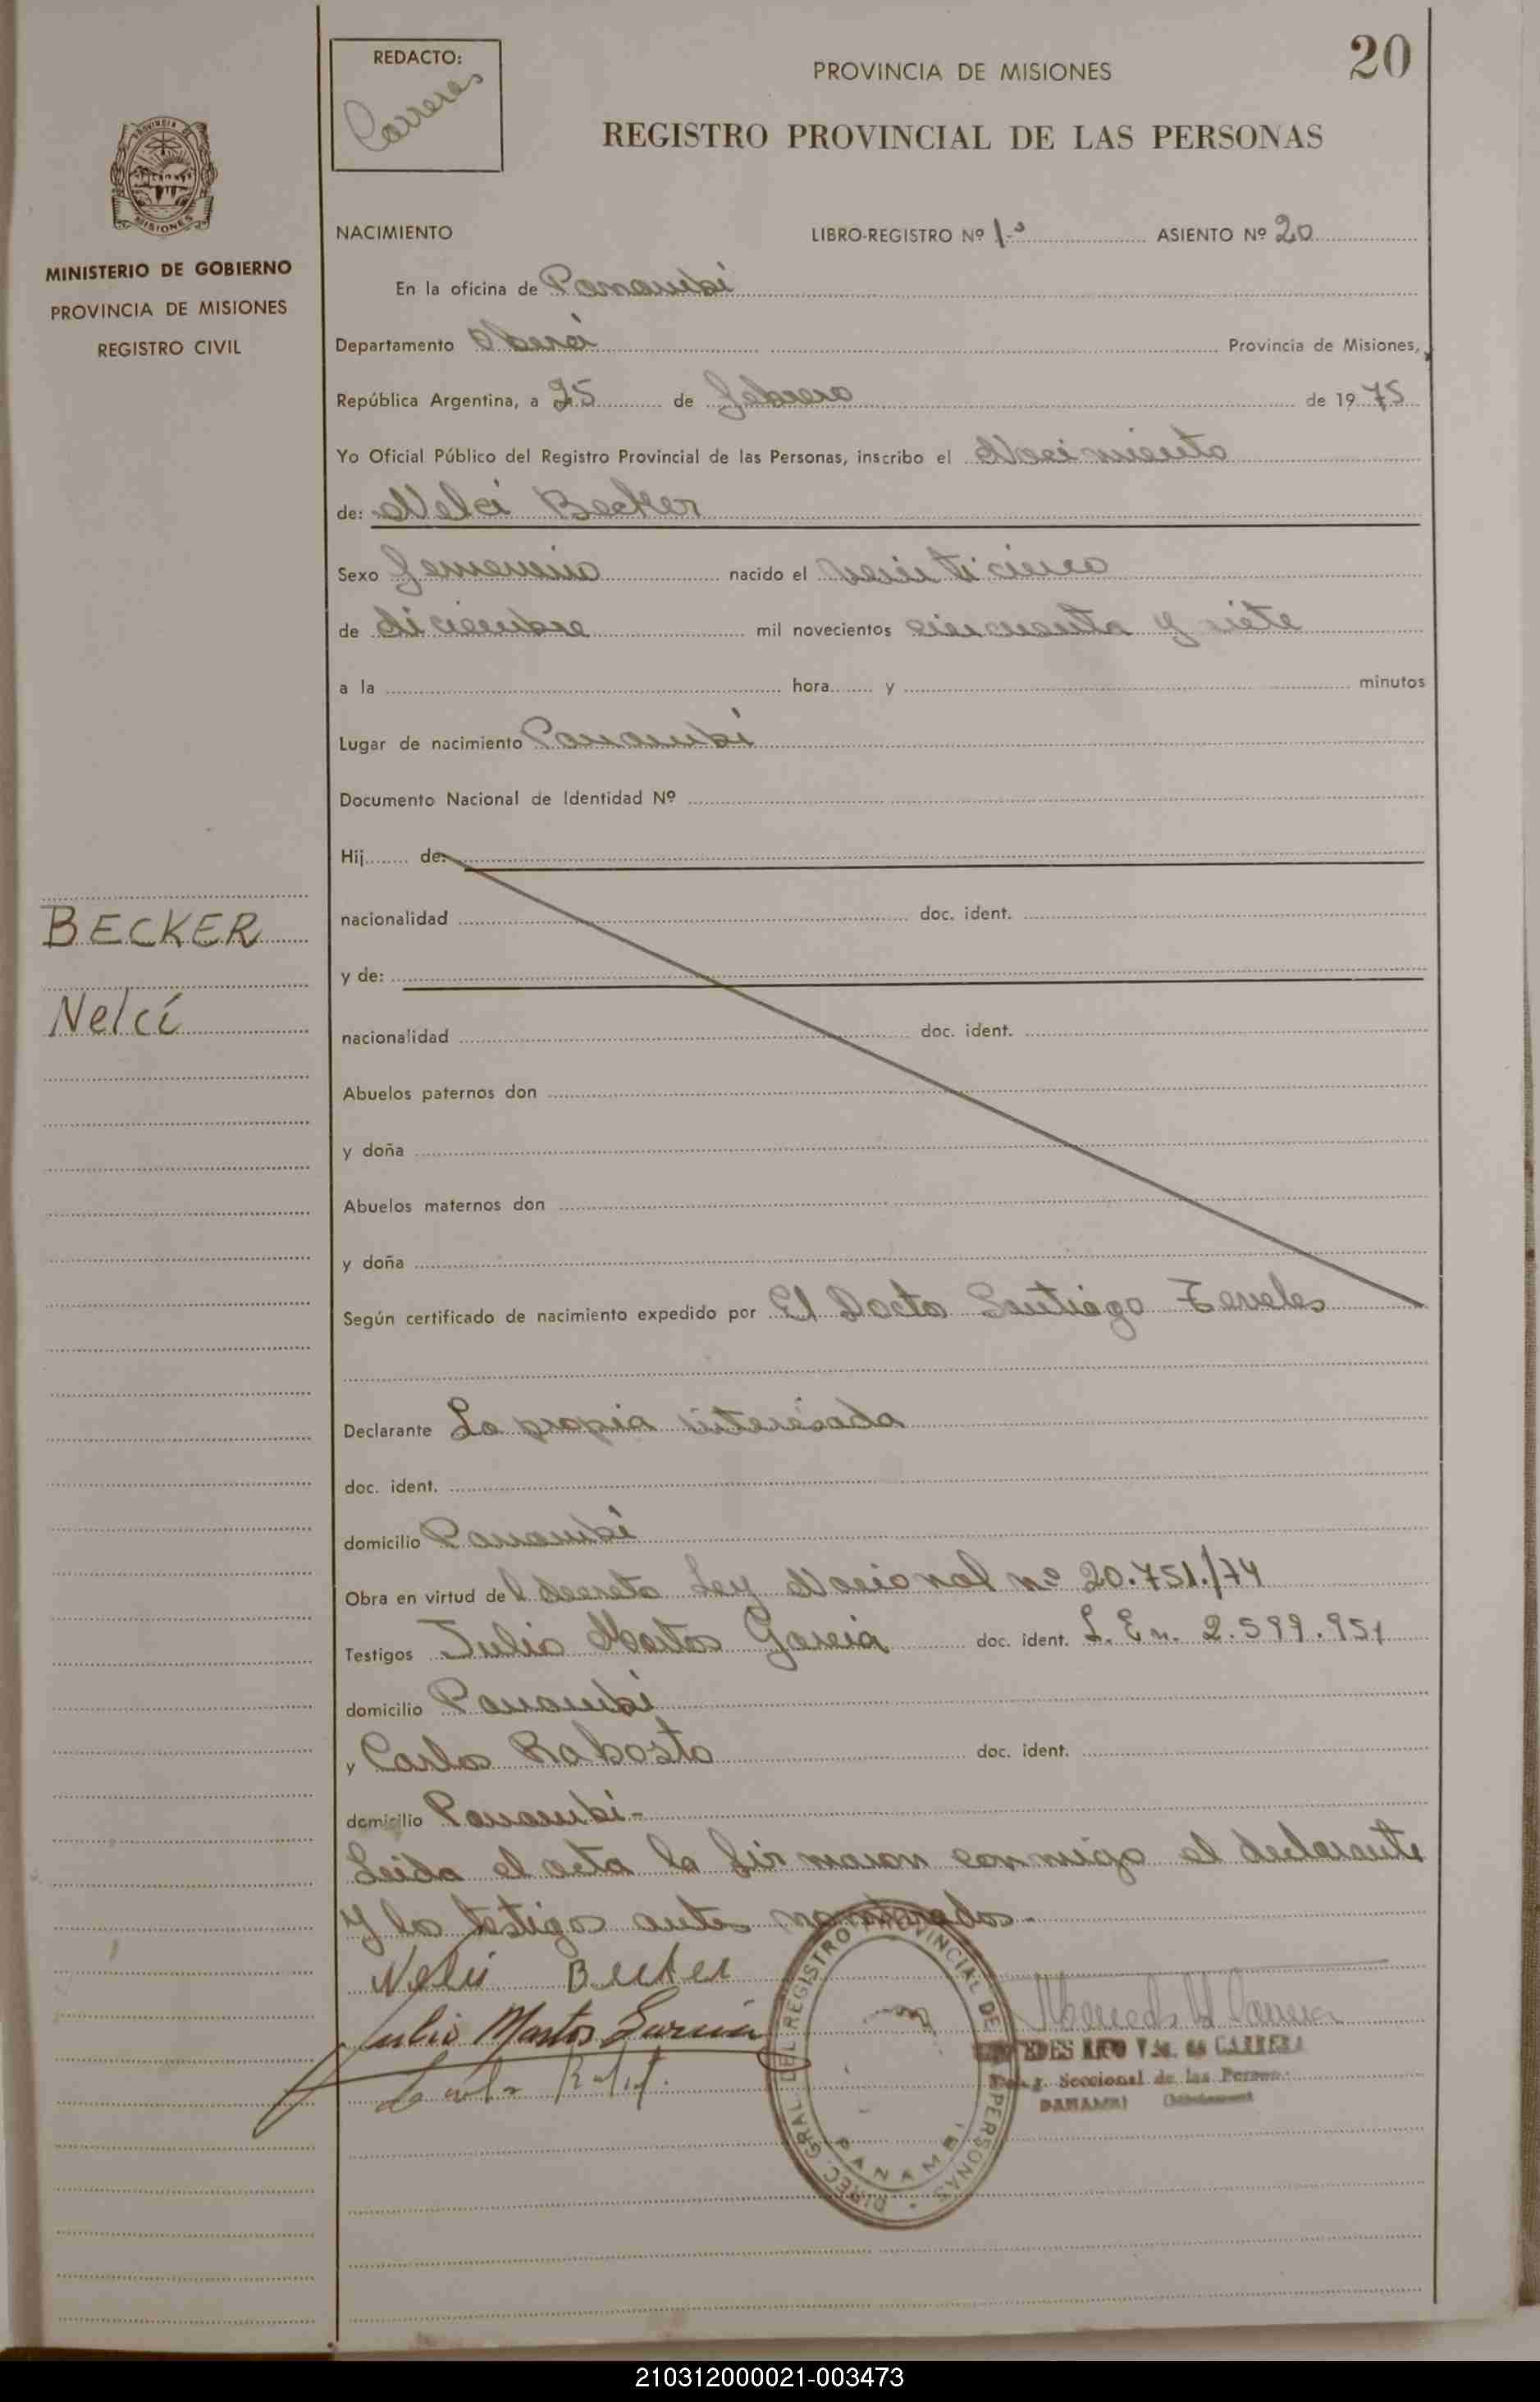 20
REDACTO:
Carrera
PROVINCIA DE MISIONES
REGISTRO PROVINCIAL DE LAS PERSONAS
MISIONES
MINISTERIO DE GOBIERNO
PROVINCIA DE MISIONES
REGISTRO CIVIL
BECKER
Nelcí
NACIMIENTO LIBRO-REGISTRO Nº 1-º ASIENTO Nº 20
En la oficina de Panambí
Departamento Oberá Provincia de Misiones,
República Argentina, a 25 de febrero de 1975
Yo Oficial Público del Registro Provincial de las Personas, inscribo el Nacimiento
de: Nelci Becker
Sexo femenino nacido el veinticinco
de diciembre mil novecientos cincuenta y siete
a la hora y minutos
Lugar de nacimiento Panambí
Documento Nacional de Identidad Nº
Hij de:
nacionalidad doc. ident.
y de:
nacionalidad doc. ident.
Abuelos paternos don
y doña
Abuelos maternos don
y doña
Según certificado de nacimiento expedido por El Docto Santiago
Declarante La propia interesada
doc. ident.
domicilio Panambí
Obra en virtud del decreto Ley Nacional nº 20.751/74
Testigos Julio Mastos Garcia doc. ident. L. E n. 2.599.951
domicilio Panambí
y Carlos Rabosto doc. ident.
domicilio Panambí-
Leida el acta la firmaron conmigo el declarante
y los testigos antes nombrados-
Nelci Becker
Julio Mastos Garcia
DIREC. GRAL. DEL REGISTRO PROVINCIAL DE PERSONAS
PANAMBI
CARRERA
Seccional de las Person.
PANAMBI
210312000021-003473